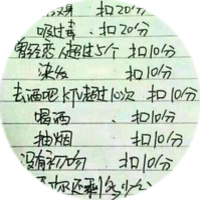 扣20分
吸过毒 扣20分
曾经恋人超过5个 扣10分
染发 扣10分
去酒吧KTV超过10次 扣10分
喝酒 扣10分
抽烟 扣10分
没有初吻 扣10分
你还剩多少分